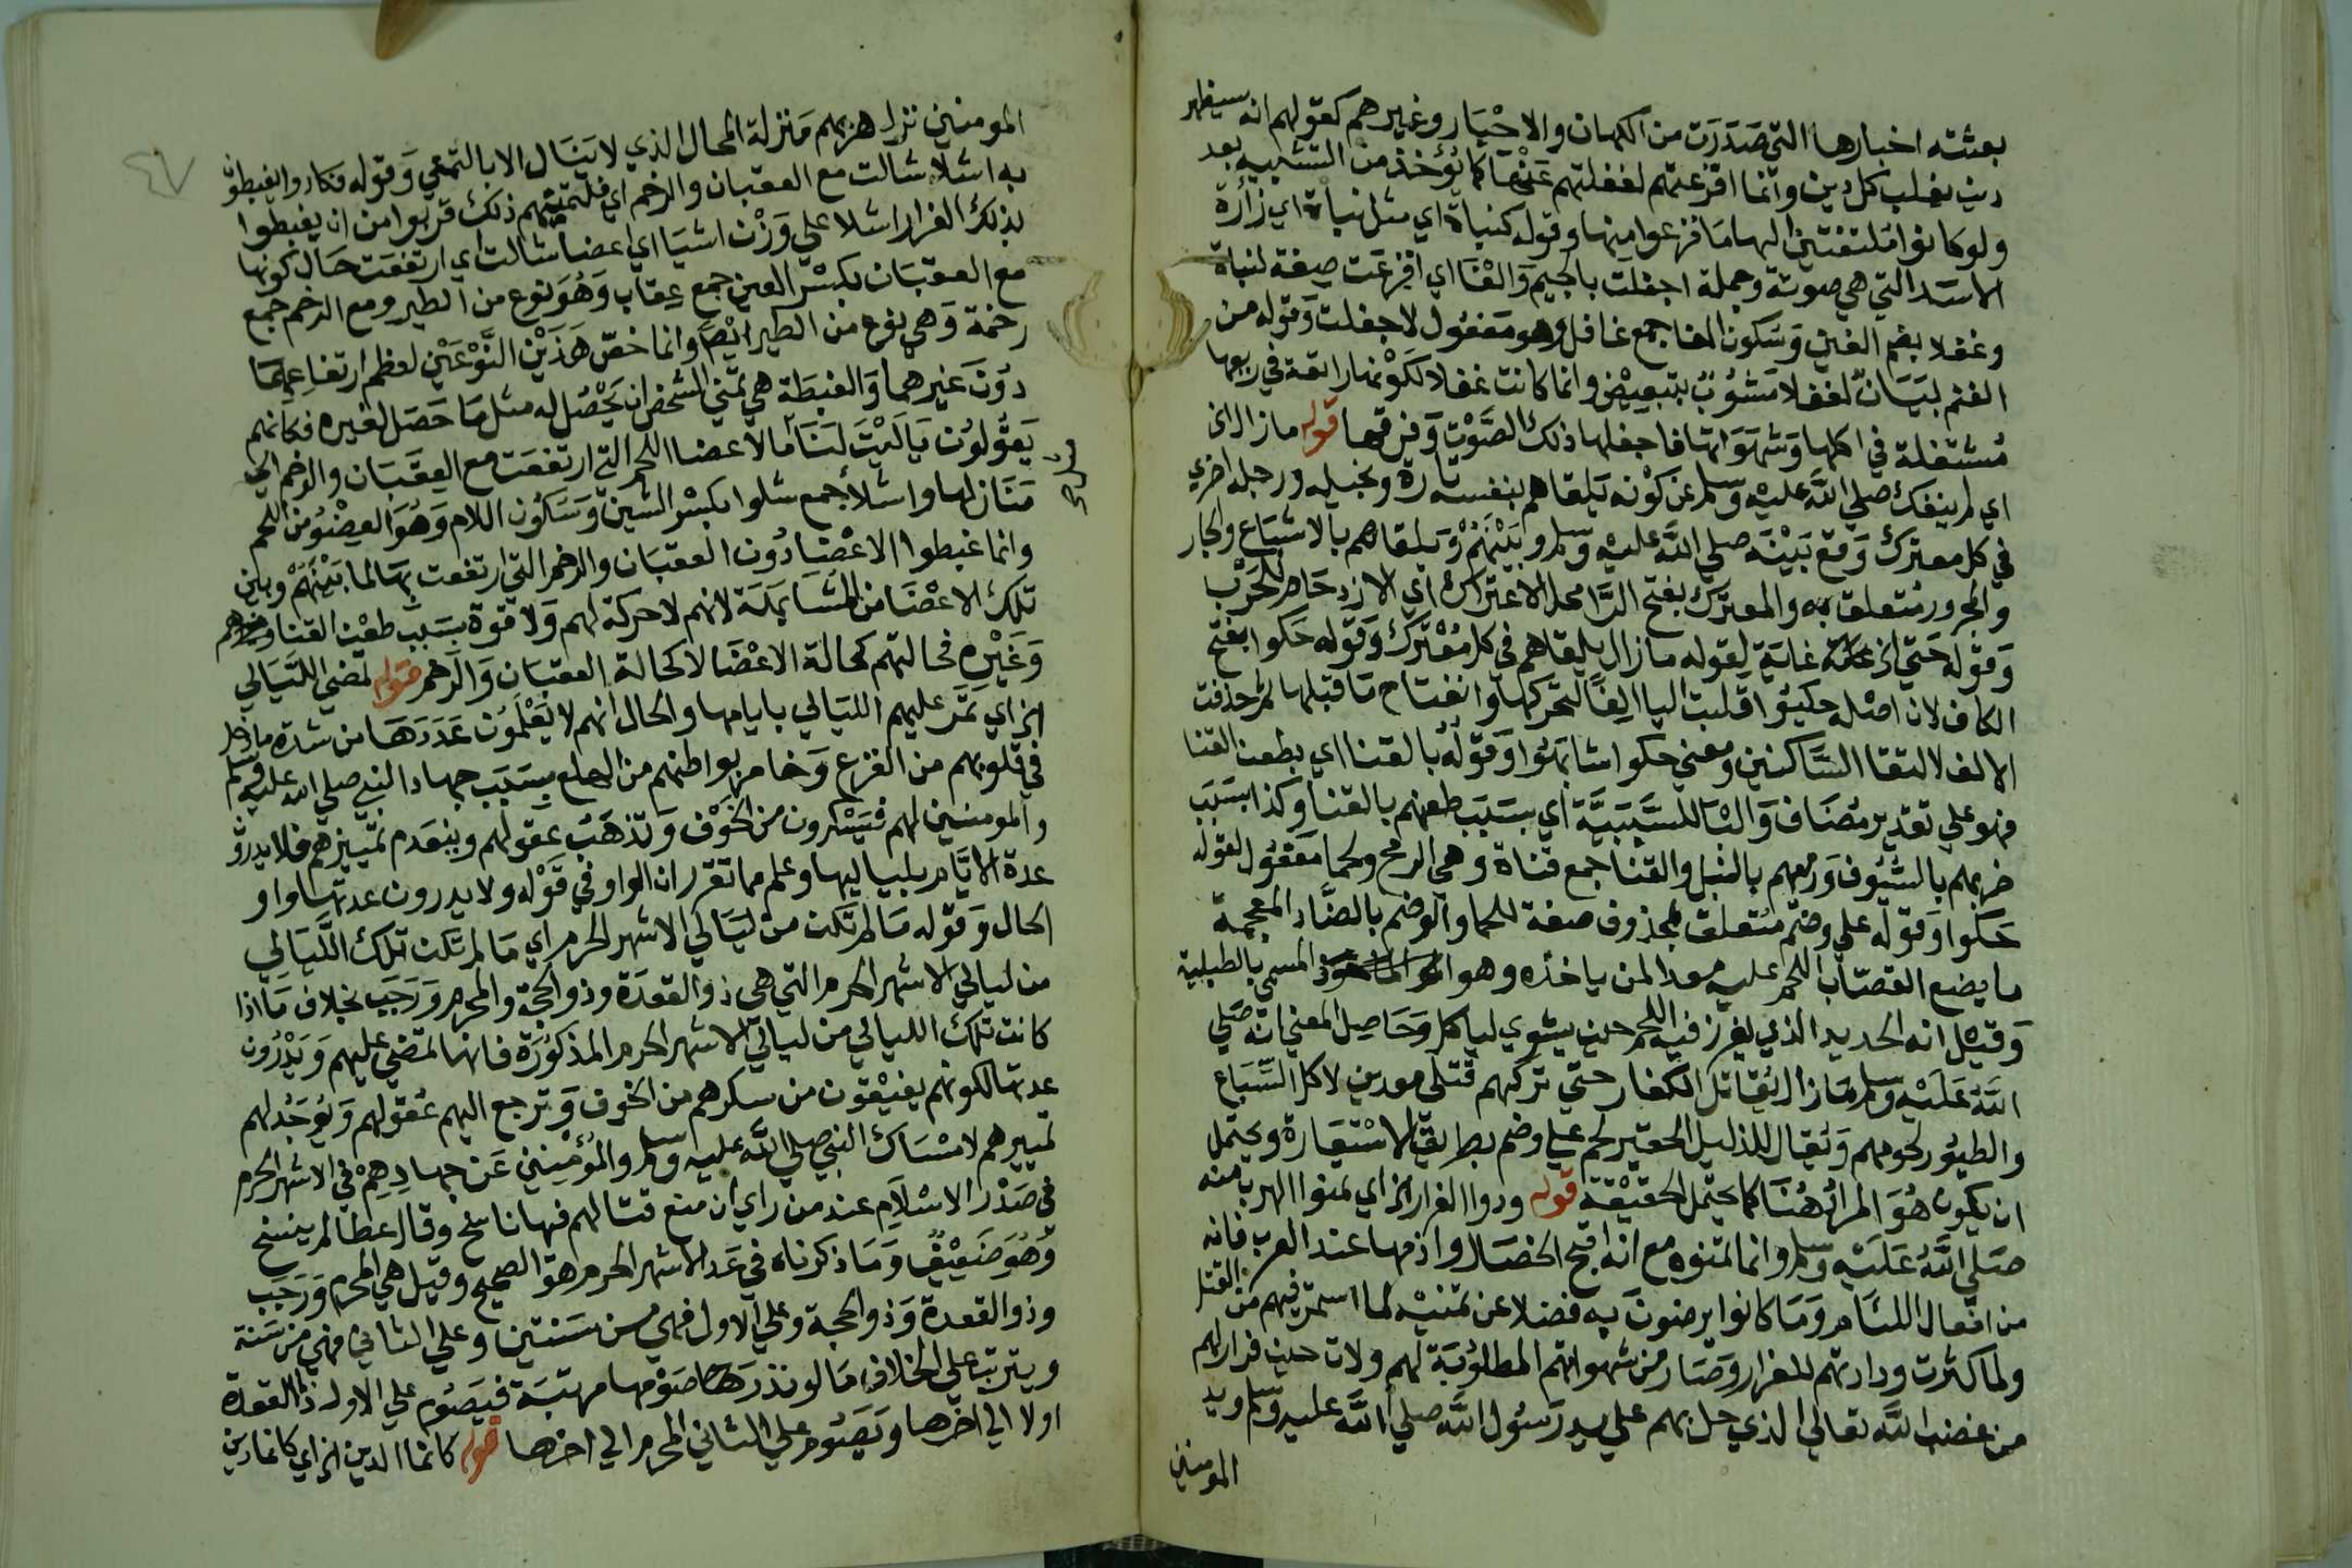 بعثته اخبارها التي صَدَرَت من الكهان والاحْبَار وغيرهم كقولهم انه سيظهر
دين يغلب كل دين وانما افزعتهم لغفلتهم عَنْهَا كما يُؤخذ من التشبيه بعد
ولو كانوا مُلتفتين اليها مَا فزعوا منها وقوله كنباة اي مثل نباة اي زأرة
الاسَد التي هي صوته وجملة اجفلت بالجيم وَالفَا اي افزعَت صفة لنباة
وغفلا بضم الغين وَسَكون الفا جمع غافل وهو مَفعُول لاجفلت وَقوله من
الغنم لبَيَان لغفلا مَشوُبٌ بتبعِيْض وانما كانت غفلا لكَوْنها راتعة في ربيعها
مُشتغلة في اكلها وَشهَوَاتها فاجفلها ذلك الصَّوْت وَفرقها قوله مازال الخ
اي لم ينفك صلي اللّٰه عليْه وسلم عن كوْنه يَلقاهم بنفسه تارة وبخيله ورجله اخري
في كل معترك وَقع بَيْنَه صلي اللّٰه عليْه وسلم وبَيْنَهُمْ وَيلقاهم بالاشبَاع والجار
والمجرور مُتعلق به والمعترك بفتح الرَّا محل الاعتراك اي الازدحَام للحَرْب
وَقوله حَتي الخ غاية لِقوله مازال يلقاهم في كل مُعْترَك وَقوله حَكوا بفتح
الكاف لان اصْله حكيوُا قلبت اليا الِفًا لتحَركها وانفتاح مَا قبلها ثم حذفت
الالف لالتقا السَّاكنين ومعني حكوا شابَهُوا وَقَولُه بالقنا اي بطعن القنا
فهو علي تقدير مُضَاف وَالبَا للسَّبَبيَّة اي بسَبَب طعنهم بالقنا وكذا بسَبَب
ضربهم بالسُّيُوف وَرميهم بالنبل والقنا جمع قناة وهي الرمح ولحما مَفعُول لقوله
حَكوا وَقوله علي وضم مُتعلق بمحذوف صفة للحما والوضم بالضَّاد المعجمة
ما يضع القصّاب اللحم عليه معدا لمن ياخذه وهو المسمي بالطبلية
وَقيْل انه الحديد الذي يغرز فيه اللحم حين يشوي لياكل وَحَاصِل المعني انه صَلي
اللّٰه عَلَيْه وسلم مَازال يُقاتل الكفار حتي تركهم قتلي معدين لاكل السِّبَاع
والطيُور لحومهم وَيُقال للذليل الحقير لحم علي وضم بطريق الاسْتعَارة ويحتمل
ان يكون هُوَ المرادُ هُنَا كما يحتمل الحَقِيْقة قوله ودوا الفرار الخ اي تمنوا الهرب منه
صَلي اللَّهُ عَلَيْه وسلم وانما تمنوه مع انه اقبح الخصَال واذمها عند العرب فانه
من افعال اللئَام وَمَا كانوا يرضون به فضلا عن تمنيْه لما استمر فيهم من القتل
ولما كثرت ودادتهم للفرار وَصَار من شهواتهم المطلوُبَة لهم ولات حين فرار لهم
من غضب اللّٰه تعالي الذي حل بهم علي يد رَسُول اللّٰه صلي اللّٰه عليه وسلم ويد
المومنين
٤٧
المومنين نزل هربهم مَنزلة المحال الذي لا يَنَال الا بالتمني وَقوله فكادوا يغبطون
به اشلا شالت مع العقبان والرخم اي فلتمنيهم ذلك قربوا من ان يغبطوا
بذلك الفرار اشلا علي وَزْن اشيَا اي اعضا شالت اي ارتفعَت حَال كونها
مع العقبَان بكسْر العين جمع عِقاب وَهُوَ نوع من الطير ومع الرخم جمع
رخمة وَهي نوع من الطير ايْضا وانما خصّ هَذَيْن النَّوْعَيْن لعظم ارتفاعِهمَا
دُوْنَ غيرهما وَالغبطَة هي تمني الشخص ان يَحْصُل له مثل مَا حَصَل لغيره فكانهم
يَقوُلوُن يَا لَيْتَ لنَا مَا لاعضا اللحم التي ارتفعَت مع العِقبَان والرخم الي
مَنَازلها واشلا جمع شلوا بكسْر الشين وَسَكُون اللام وَهُوَ العضْوُ من اللحم
وانما غبطوا الاعْضَا دُون العقبَان والرخم التي ارتفعت بهَا لما بَيْنَهُمْ وبين
تلك الاعْضَا من المشَابَهَة لانهم لا حركة لهم وَلا قوة بسَبَب طعْن القنا
وَغَيْرِه فحالتهم كحالة الاعْضَا لا كحالة العقبَان وَالرخم قوله تمضي اللّيَالي
الخ اي تمرّ عليهم الليَالي بايامها والحال انهم لا يَعْلَمُون عَدَدَهَا من شدة ما دخل
في قلوبهم من الفزع وَخامر بواطنهم من الهلع بسَبَب جهاد النبي صلي اللّٰه عليه وسلم
والمومنين لهم فيَسْكرون من الخَوْف وَتذهَبُ عقولهم وينعَدم تمييزهم فلا يدرون
عدة الايَّام بلياليها وعلم مما تقرر ان الواو في قَوْله ولا يدرون عدتها واو
الحال وَقوله مَا لم تَكن من لَيَالي الاشهر الحرم اي مَا لم تكن تلك اللَّيَالي
من ليالي الاشهر الحرم التي هي ذو القعدَة وذو الحجة والمحرم وَرَجَب بخلاف مَا اذا
كانت تلك الليالي من ليالي الاشهر الحرم المذكوُرَة فانها تمضي عليهم وَيَدْرُون
عدتها لكونهم يفيْقون من سكرهم من الخوف وَترجع اليهم عُقولهم وَيُوجَدُ لهم
تمييزهم لامْسَاك النبي صلي اللّٰه عليه وسلم والمُؤْمِنين عَن جهادِهِمْ في الاشهر الحرم
في صَدْر الاسْلَام عند من راي ان منع قتالهم فيها ناسخ وقال عطا لم ينسخ
وَهُوَ ضَعِيْفٌ وَمَا ذكرناه في عَد الاشهر الحرم هو الصحيح وقيل هي المحرم وَرَجَب
وذو القعدة وَذو الحجة وعلي الاول فهي من سَنتين وعلي الثاني فهي من سَنة
ويترتب علي الخلاف مَا لو نذرَ صَوْمها مرتبَة فيَصُوم علي الاول ذا القعدة
اولا الي اخرها وَيَصُوم علي الثاني المحرم الي اخرها قوله كانما الدين الخ اي كانما دين